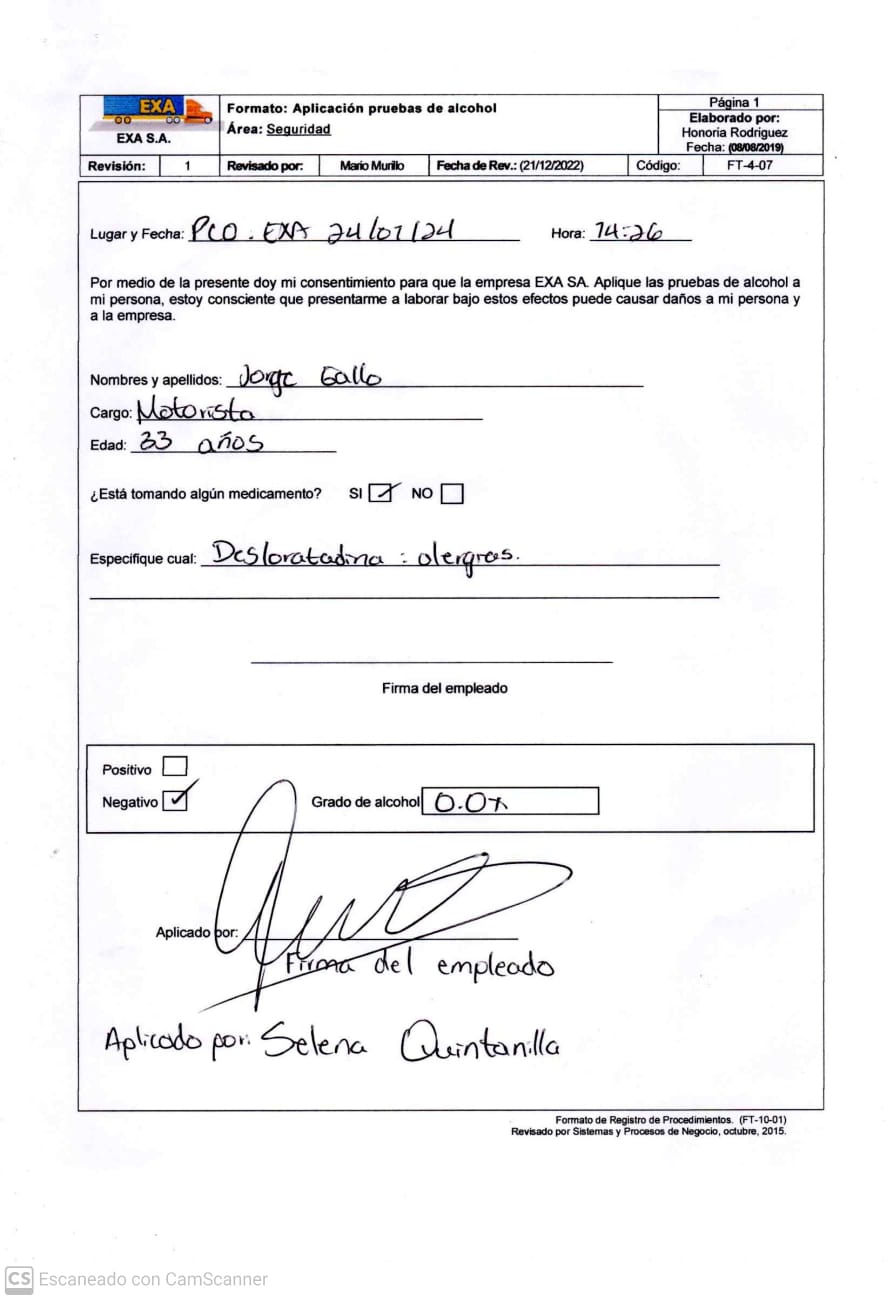 EXA
EXA S.A.
Formato: Aplicación pruebas de alcohol
Área: Seguridad
Página 1
Elaborado por:
Honoria Rodriguez
Fecha: (08/08/2019)
Revisión: 1 Revisado por: Mario Murillo Fecha de Rev.: (21/12/2022) Código: FT-4-07
Lugar y Fecha: PCO. EXA 24/01/24 Hora: 14:26
Por medio de la presente doy mi consentimiento para que la empresa EXA SA. Aplique las pruebas de alcohol a
mi persona, estoy consciente que presentarme a laborar bajo estos efectos puede causar daños a mi persona y
a la empresa.
Nombres y apellidos: Jorge Gallo
Cargo: Motorista
Edad: 33 años
¿Está tomando algún medicamento? SI NO
Especifique cual: Desloratadina :
Firma del empleado
Positivo
Negativo Grado de alcohol
Aplicado por:
Firma del empleado
Aplicado por: Selena Quintanilla
Formato de Registro de Procedimientos. (FT-10-01)
Revisado por Sistemas y Procesos de Negocio, octubre, 2015.
CS Escaneado con CamScanner